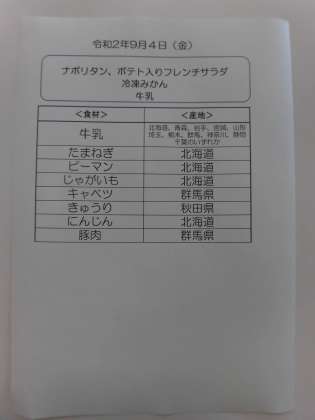 令和2年9月4日（金）
ナポリタン、ポテト入りフレンチサラダ
冷凍みかん
牛乳
＜食材＞ ＜産地＞
牛乳 北海道、青森、岩手、宮城、山形
埼玉、栃木、群馬、神奈川、静岡
千葉のいずれか
たまねぎ 北海道
ピーマン 北海道
じゃがいも 北海道
キャベツ 群馬県
きゅうり 秋田県
にんじん 北海道
豚肉 群馬県